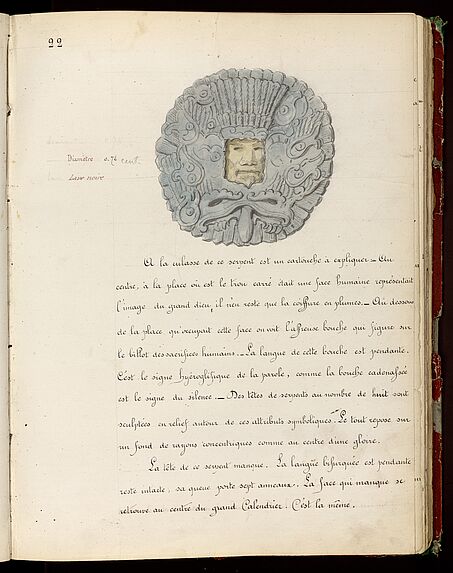 22
Diamètre 0.76 cent.
Lave noire
A la culasse de ce serpent est un cartouche à expliquer_ Au
centre, à la place où est le trou carré était une face humaine représentant
l'image du grand dieu, il n'en reste que la coiffure en plumes._ Au dessous
de la place qu'occupait cette face on voit l'affreuse bouche qui figure sur
le billot des sacrifices humains._ La langue de cette bouche est pendante.
C'est le signe hyéroglifique de la parole, comme la bouche cadenassée
est le signe du silence._ Des têtes de serpents au nombre de huit sont
sculptées en relief autour de ces attributs symboliques._ Le tout repose sur
un fond de rayons concentriques comme au centre d'une gloire.
La tête de ce serpent manque. La langue bifurquée est pendante
reste intacte, sa queue porte sept anneaux. La face qui manque se
retrouve au centre du grand Calendrier. C'est la même.